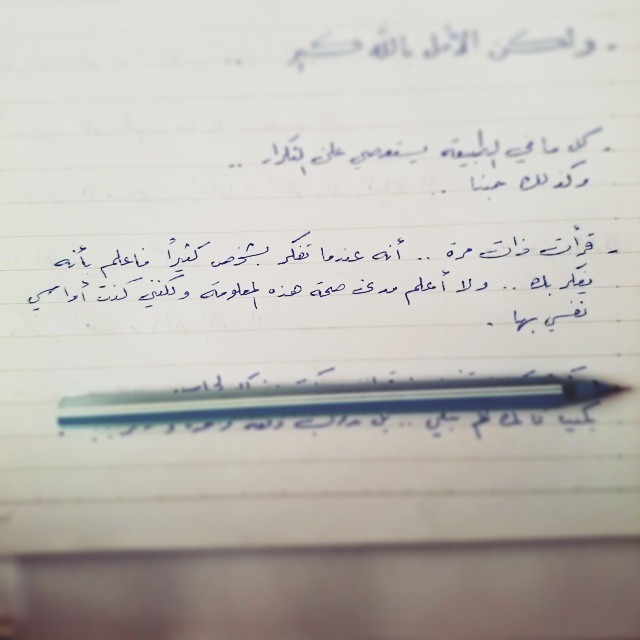 - ولكن الأمل بالله كبير ..
- كل ما في الطبيعة يستعصي على التكرار ..
وكذلك حبنا .
- قرأت ذات مرة .. أنه عندما تفكر بشخص كثيراً فاعلم بأنه
يفكر بك .. ولا أعلم مدى صحة هذه المعلومة ولكنني كنت أواسي
نفسي بها .